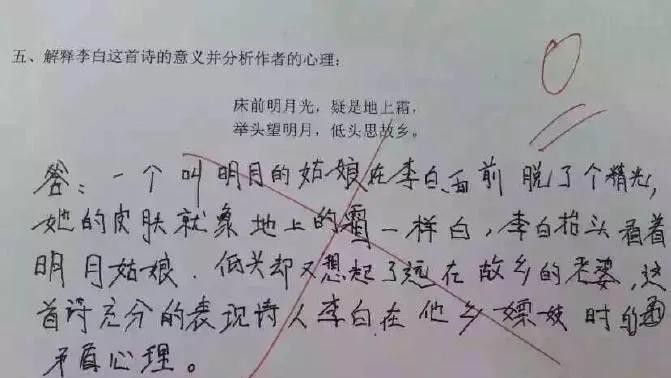 五、解释李白这首诗的意义并分析作者的心理:
床前明月光，疑是地上霜，
举头望明月，低头思故乡。
0
答：一个叫明月的姑娘在李白面前脱了个精光，
她的皮肤就象地上的霜一样白，李白抬头看着
明月姑娘．低头却又想起了远在故乡的老婆，这
首诗充分的表现诗人李白在他乡嫖妓时的
矛盾心理。